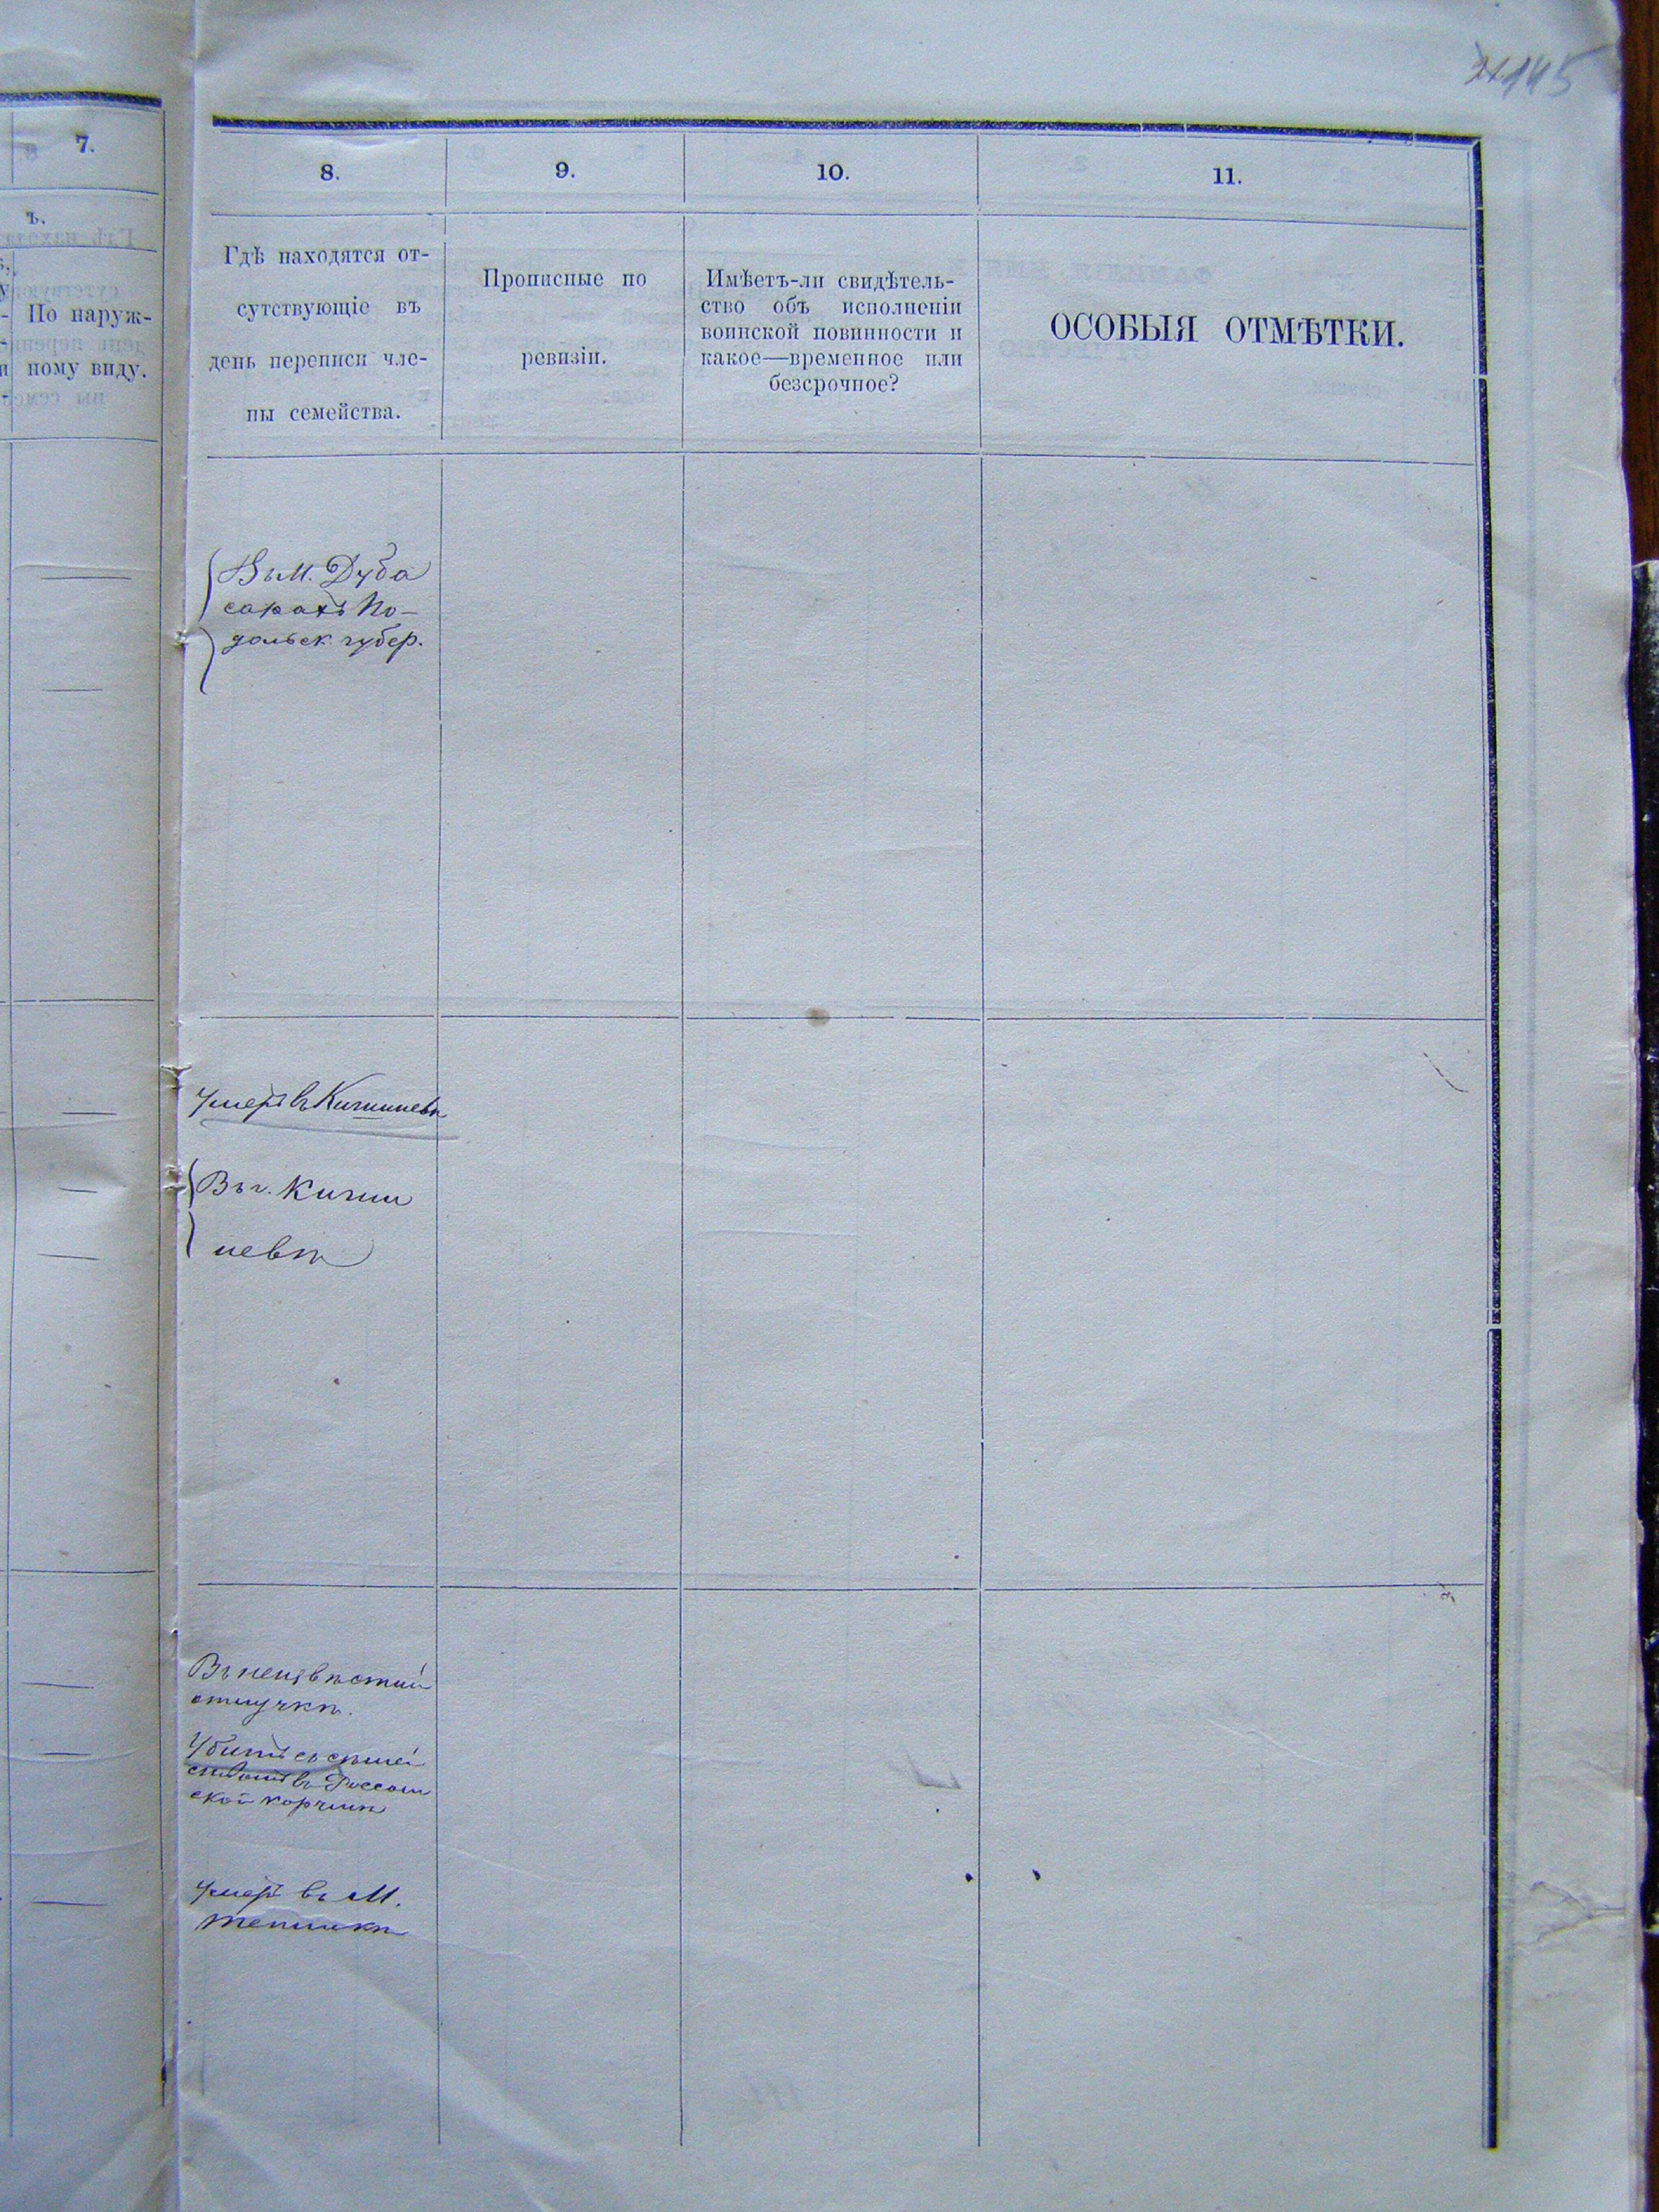 145
7.
8.
9.
10.
11.
ъ.
По наруж-
ному виду.
Гдѣ находятся от-
сутствующіе въ
день переписи чле-
ны семейства.
Прописные по
ревизіи.
Имѣетъ-ли свидѣтель-
ство объ исполненіи
воинской повинности и
какое—временное или
безсрочное?
ОСОБЫЯ ОТМѢТКИ.
Въ м. Дуба
сарахъ По-
дольск. губер.
Умеръ въ Кишиневѣ
Въ г. Киши
невѣ
Въ неизвѣстной
отлучкѣ.
Убитъ съ
въ
ской корчмѣ
Умеръ въ м.